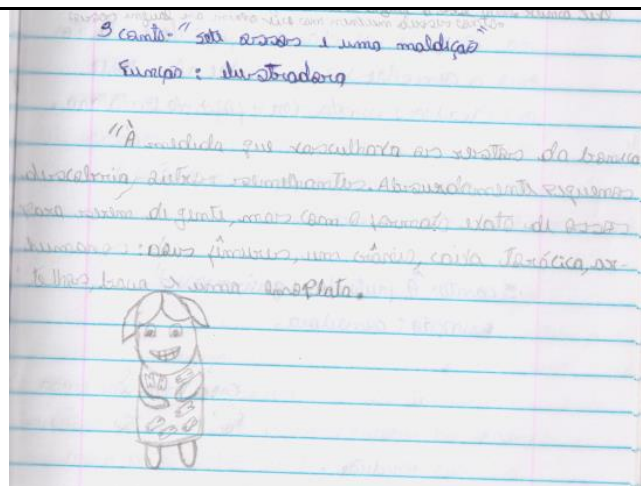 3 conto - "Sete ossos e uma maldição"
Função: ilustradora
"À medida que vasculhava os restos da boneca
descobria outros semelhantes. Absurdamente pequenos
para serem de gente, mas com o formato exato de ossos
humanos: dois fêmures, um crânio, caixa torácica, ar-
telhos, bacia e uma omoplata.